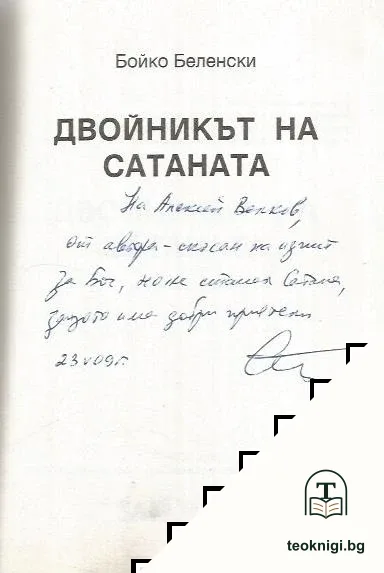 Бойко Беленски
ДВОЙНИКЪТ НА
САТАНАТА
На Алексей Велков,
от автора - скъсан на изпит
за Бог, но не станал Сатана,
защото има добри приятели.
23 V 09 г.
T
teoknigi.bg